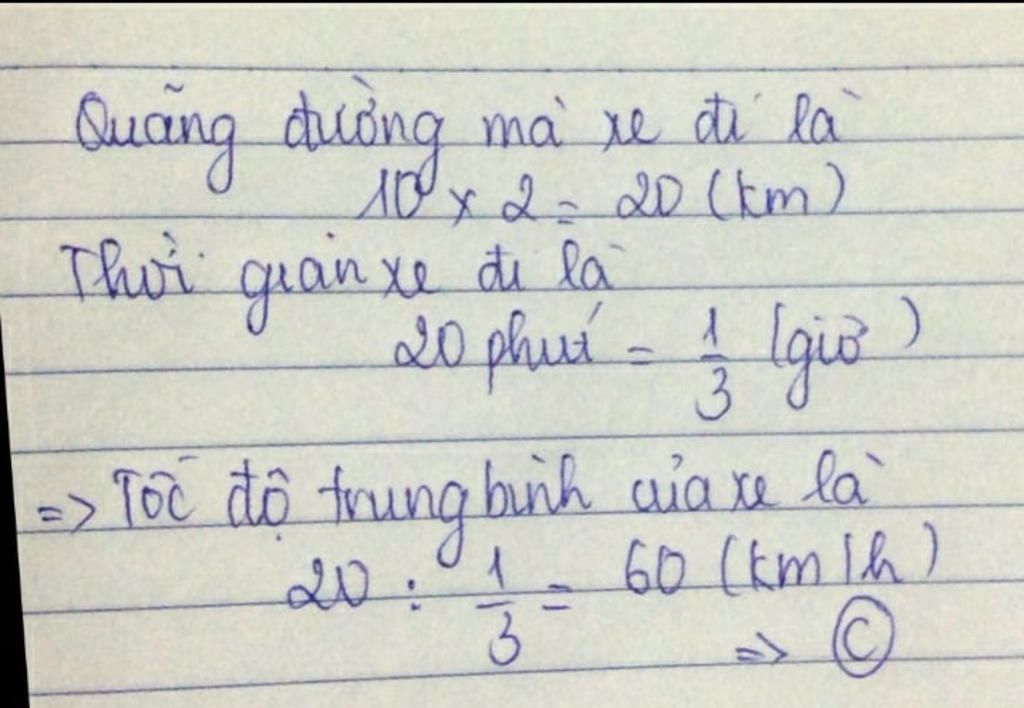 Quãng đường mà xe đi là
10 x 2 = 20 (km)
Thời gian xe đi là
20 phút = 1/3 (giờ)
=> Tốc độ trung bình của xe là
20 : 1/3 = 60 (km/h)
=> C